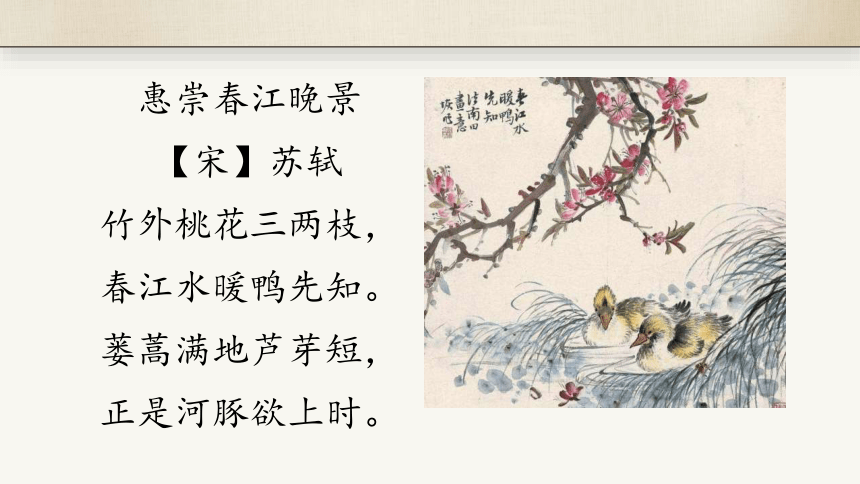 惠崇春江晚景
【宋】苏轼
竹外桃花三两枝，
春江水暖鸭先知。
蒌蒿满地芦芽短，
正是河豚欲上时。
春江水
暖鴨
先知
畫意